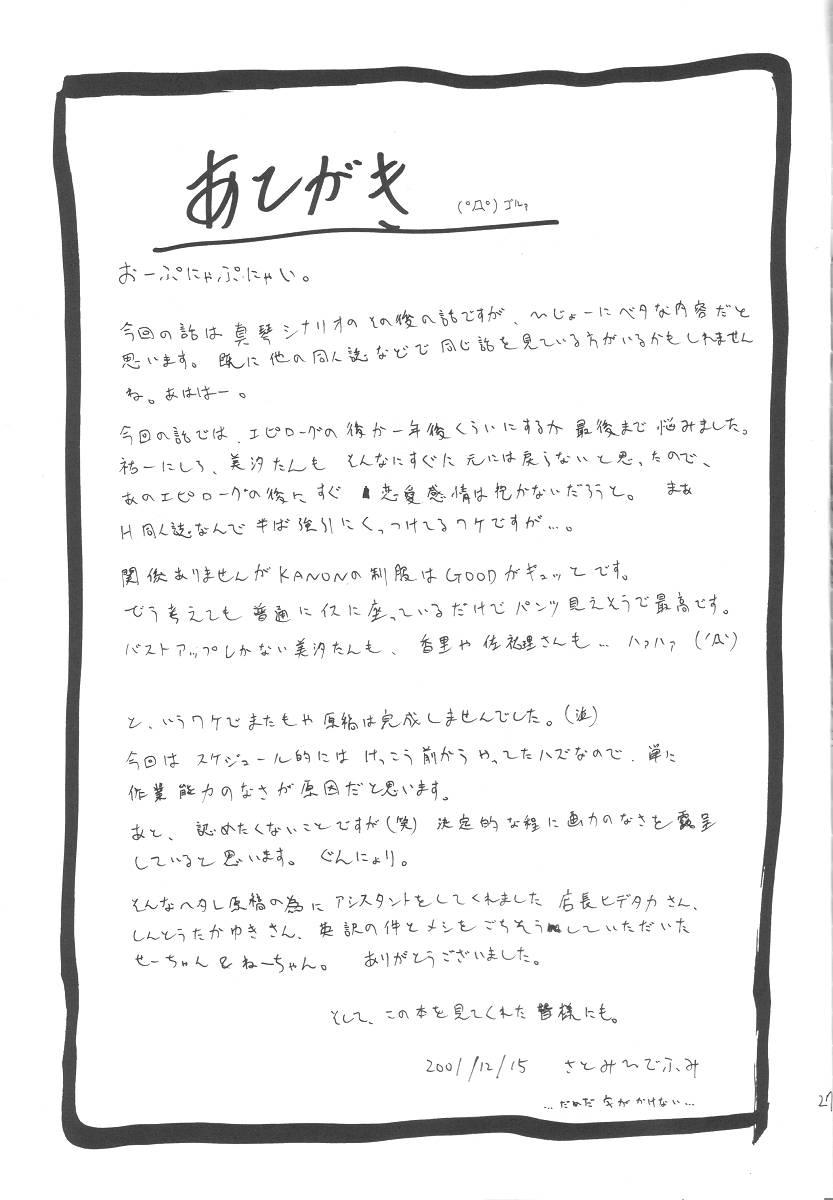 あとがき (゜Д゜)ゴルァ
おーぷにゃぷにゃい。
今回の話は真琴シナリオのその後の話ですが、ひじょーにベタな内容だと
思います。既に他の同人誌などで同じ話を見ている方がいるかもしれません
ね。あははー。
今回の話では、エピローグの後か一年後くらいにするか最後まで悩みました。
祐一にしろ、美汐たんもそんなにすぐに元には戻らないと思ったので、
あのエピローグの後にすぐ恋愛感情は抱かないだろうと。まあ
H同人誌なんで半ば強引にくっつけてるワケですが…。
関係ありませんがKANONの制服はGOODがギュッとです。
どう考えても普通にイスに座っているだけでパンツ見えそうで最高です。
バストアップしかない美汐たんも、香里や佐祐理さんも…ハァハァ(´Д`)
と、いうワケでまたもや原稿は完成しませんでした。(泣)
今回はスケジュール的にはけっこう前からやってたハズなので、単に
作業能力のなさが原因だと思います。
あと、認めたくないことですが(笑)決定的な程に画力のなさを露呈
していると思います。ぐんにょり。
そんなヘタレ原稿の為にアシスタントをしてくれました店長ヒデタカさん、
しんとうたかゆきさん、英訳の件とメシをごちそうしていただいた
せーちゃん&ねーちゃん。ありがとうございました。
そして、この本を見てくれた皆様にも。
2001/12/15 さとみひでふみ
…だめだ字がかけない…
27